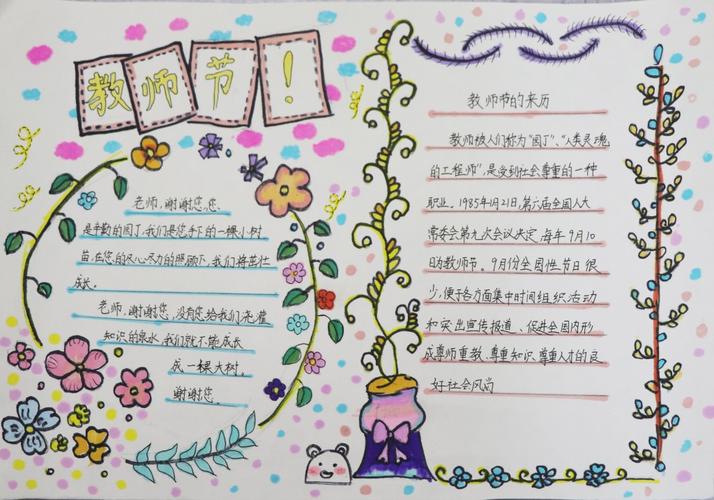 教师节！
老师，谢谢您，您
是辛勤的园丁，我们是您手下的一棵小树
苗，在您的尽心尽力的照顾下，我们将茁壮
成长。
老师，谢谢您，没有您给我们浇灌
知识的泉水，我们就不能成长
成一棵大树。
谢谢您。
教师节的来历
教师被人们称为“园丁”、“人类灵魂
的工程师”，是受到社会尊重的一种
职业。1985年1月21日，第六届全国人大
常委会第九次会议决定，每年9月10
日为教师节。9月份全国性节日很
少，便于各方面集中时间组织活动
和突出宣传报道、促进全国内形
成尊师重教、尊重知识、尊重人才的良
好社会风尚